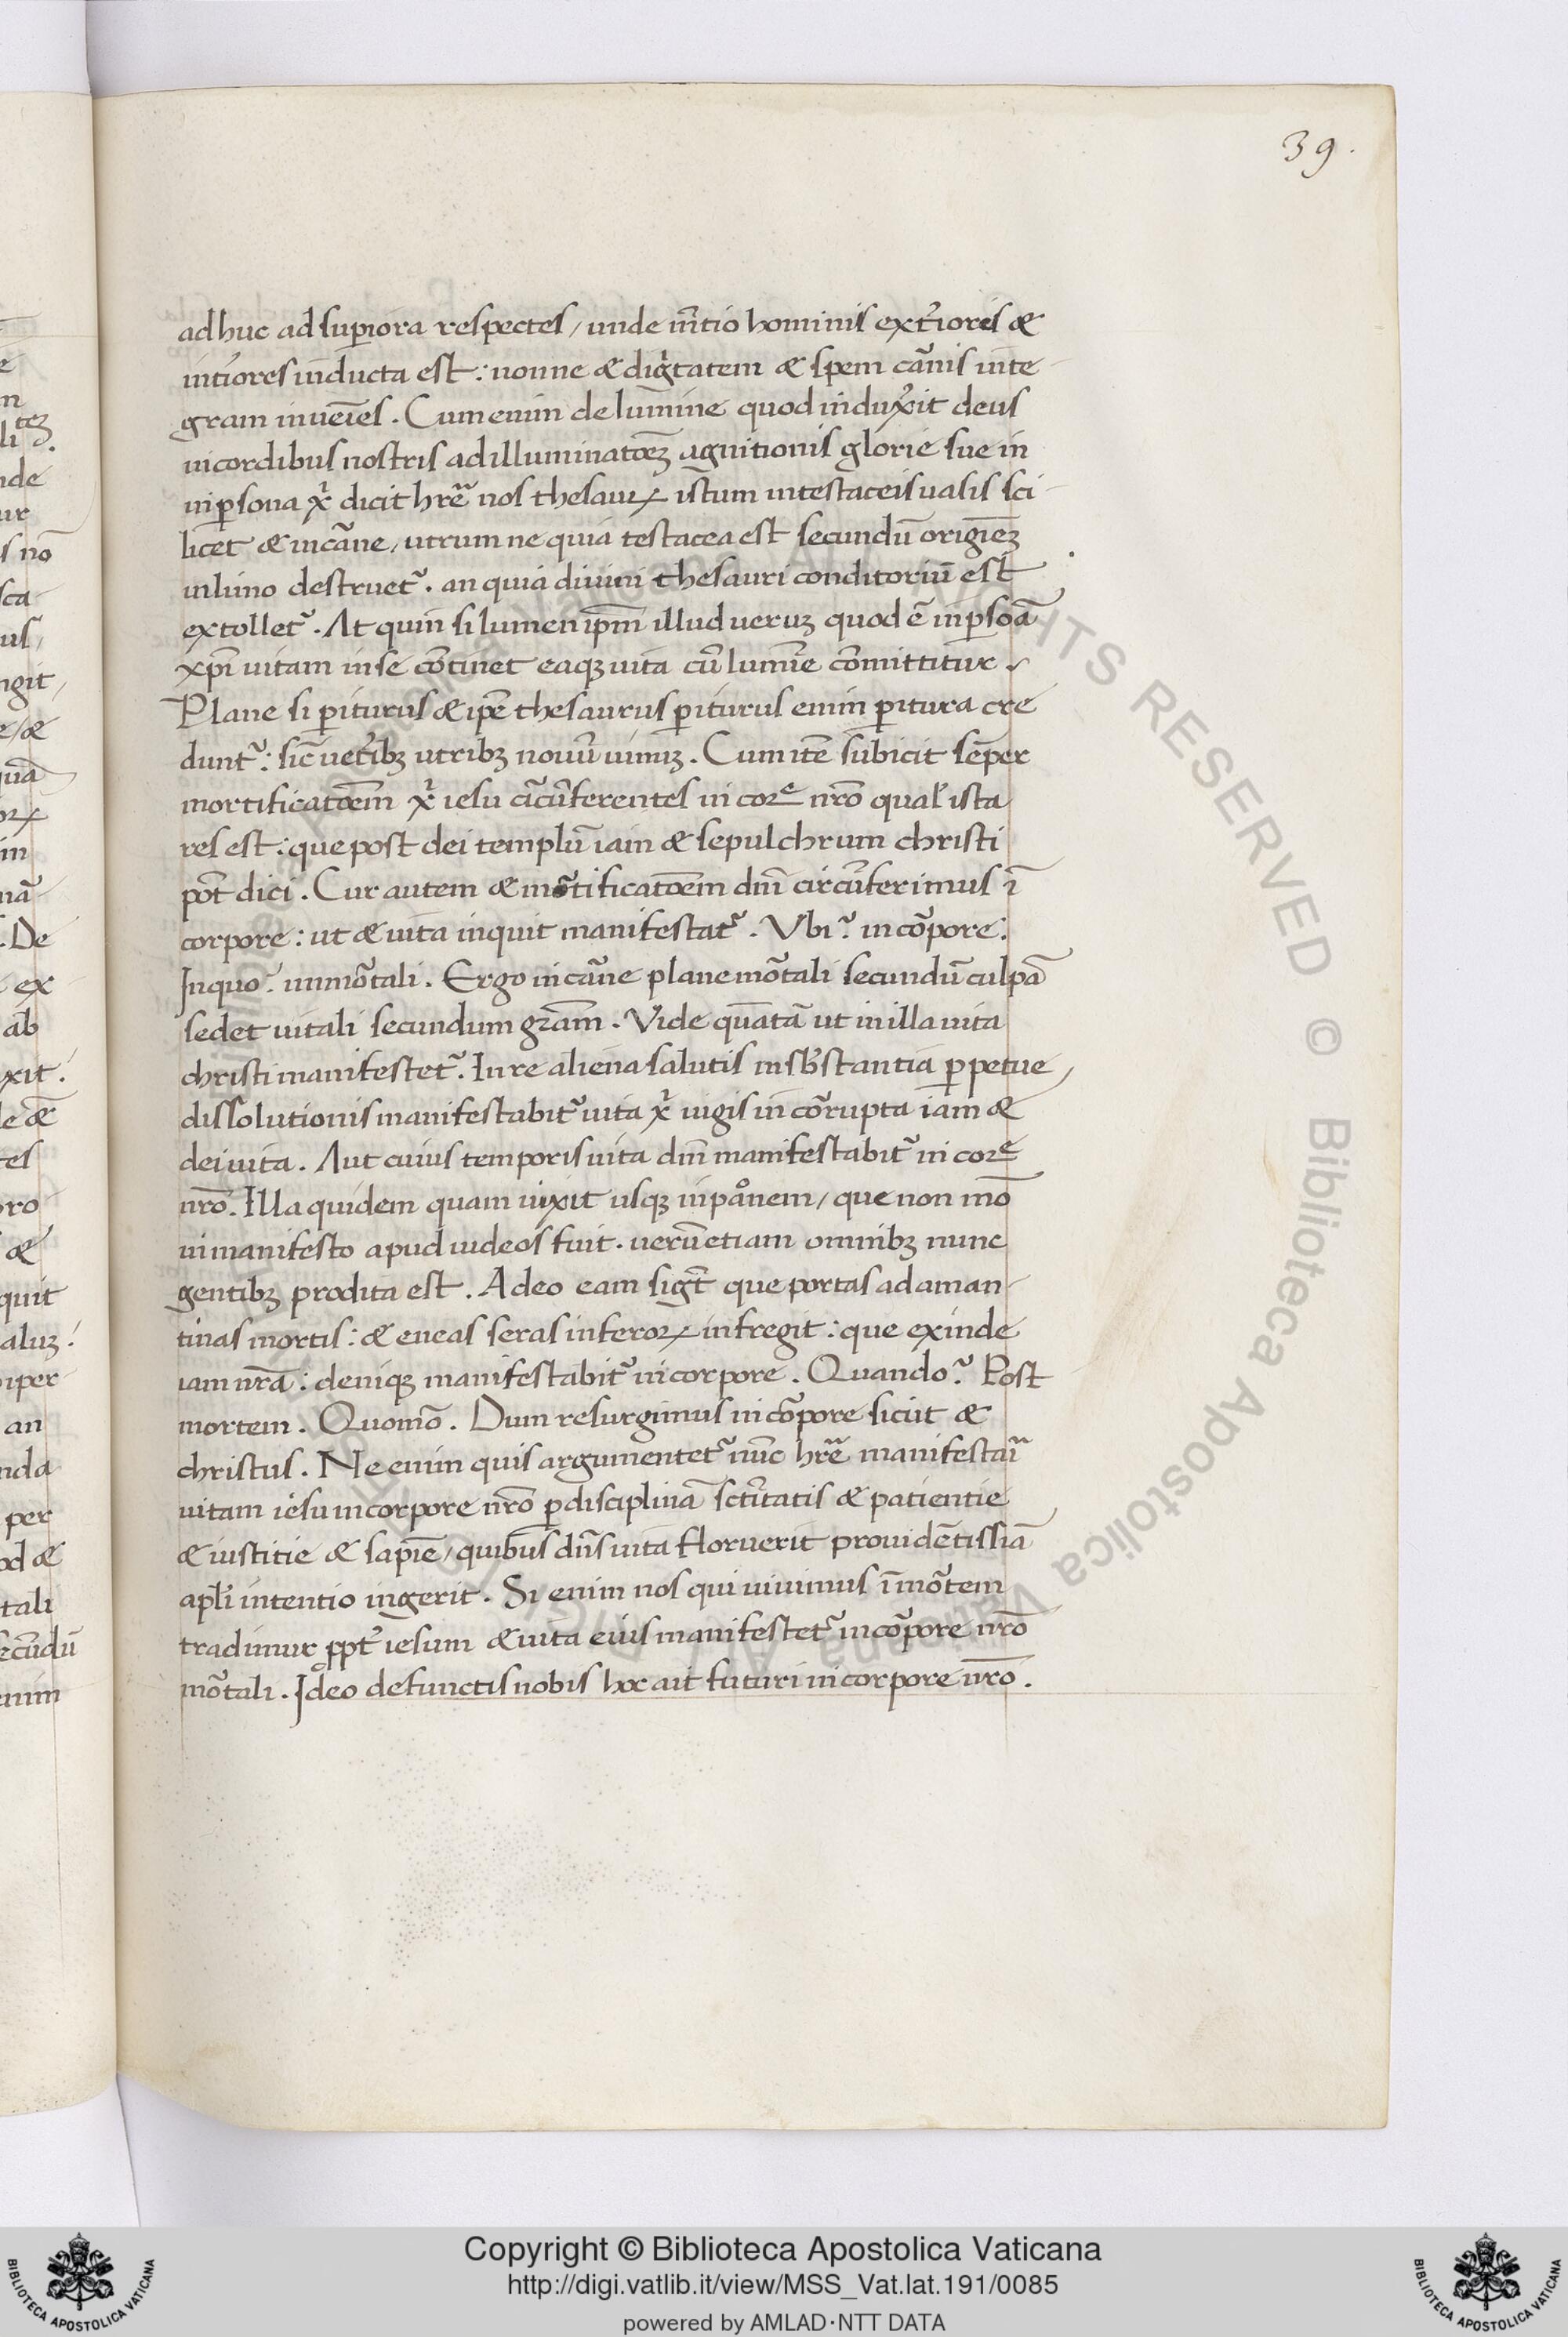 39.
ad huc ad supiora respectes / unde m̃tio hominis ext̃iores &
int̃iores inducta est : nonne & dig̃tatem & spem cãnis inte
gram inveĩes . Cum enim de lum̃ine quod induxĩt deus
in cordibus nostris ad illuminatõez agnitionis glorie sue in
in p̱sona xp̃i dicit hr̃e nos thesauꝝ istum in testaceis uasis sci
licet & in cãne / utrum ne quia testacea est secundũ origiẽz
in limo destruet᷑ . an quia divini thesauri conditoriũ est
extollet᷑ . At quin si lumen ip̃m illud veruz quod ẽ in p̱soã
xp̃i uitam in se cõtinet eaqꝫ uita cũ lumĩe cõmittitur .
Plane si p̱iturus & ip̃e thesaurus p̱iturus enim p̱itura cre
dunt᷑ : sic̃ uet̃ibꝫ utribꝫ nouũ uinuꝫ . Cum itẽ subicit sẽper
mortificatõem xp̃i iesu cĩcũferentes in corᵉ nr̃o qual' ista
res est : que post dei templũ iam & sepulchrum christi
pot̃ dici . Cur autem & mõtificatõem dñi circũferimus ĩ
corpore : ut & uita inquit manifestat᷑ . Vbi ? in cõpore :
In quo ? in mõtali . Ergo in cãne plane mõtali secundũ culpã
sed et uitali secundum gr̃am . Vide quãtã ut in illa uita
christi manifestet᷑ . In re aliena salutis in sb̃stantia p̱petue
dissolutionis manifestabit᷑ uita xp̃i iugis incõrupta iam &
dei uita . Aut cuius temporis uita dñi manifestabit᷑ in corᵉ
nr̃o . Illa quidem quam uixit usqꝫ in paõnem / que non mõ
in manifesto apud iudeos fuit . verũ etiam omnibꝫ nunc
gentibꝫ prodita est . Adeo eam sigt̃ que portas adaman
tinas mortis : & eneas seras inferoꝝ infregit : que exinde
iam nr̃a : deniqꝫ manifestabit᷑ in corpore . Quando ? Post
mortem . Quomõ . Dum resurgimus in cõpore sicut &
christus . Ne enim quis argumentet᷑ nũc hr̃e manifestaĩ
uitam iesu in corpore nr̃o p̱ disciplinã sct̃itatis & patientie
& iustitie & sapiẽ / quibus dñs uita floruerit providẽtissiã
apl̃i intentio ingerit . Si enim nos qui vivimus ĩ mõtem
tradimur ppt̃ iesum & uita eius manifestet᷑ in cõpore nr̃o
mõtali . Ideo defunctis nobis hoc ait futuri in corpore nr̃o .
Copyright © Biblioteca Apostolica Vaticana
http://digi.vatlib.it/view/MSS_Vat.lat.191/0085
powered by AMLAD·NTT DATA